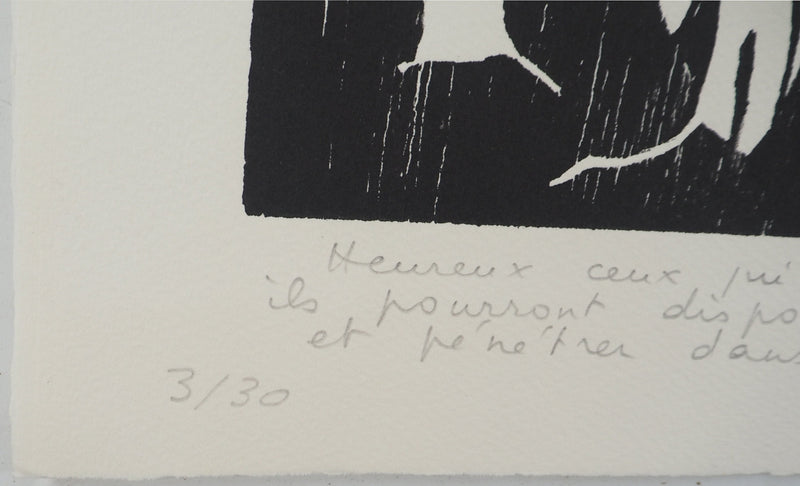 Heureux ceux qui
ils pourront dispo
et pénétrer dans
3/30